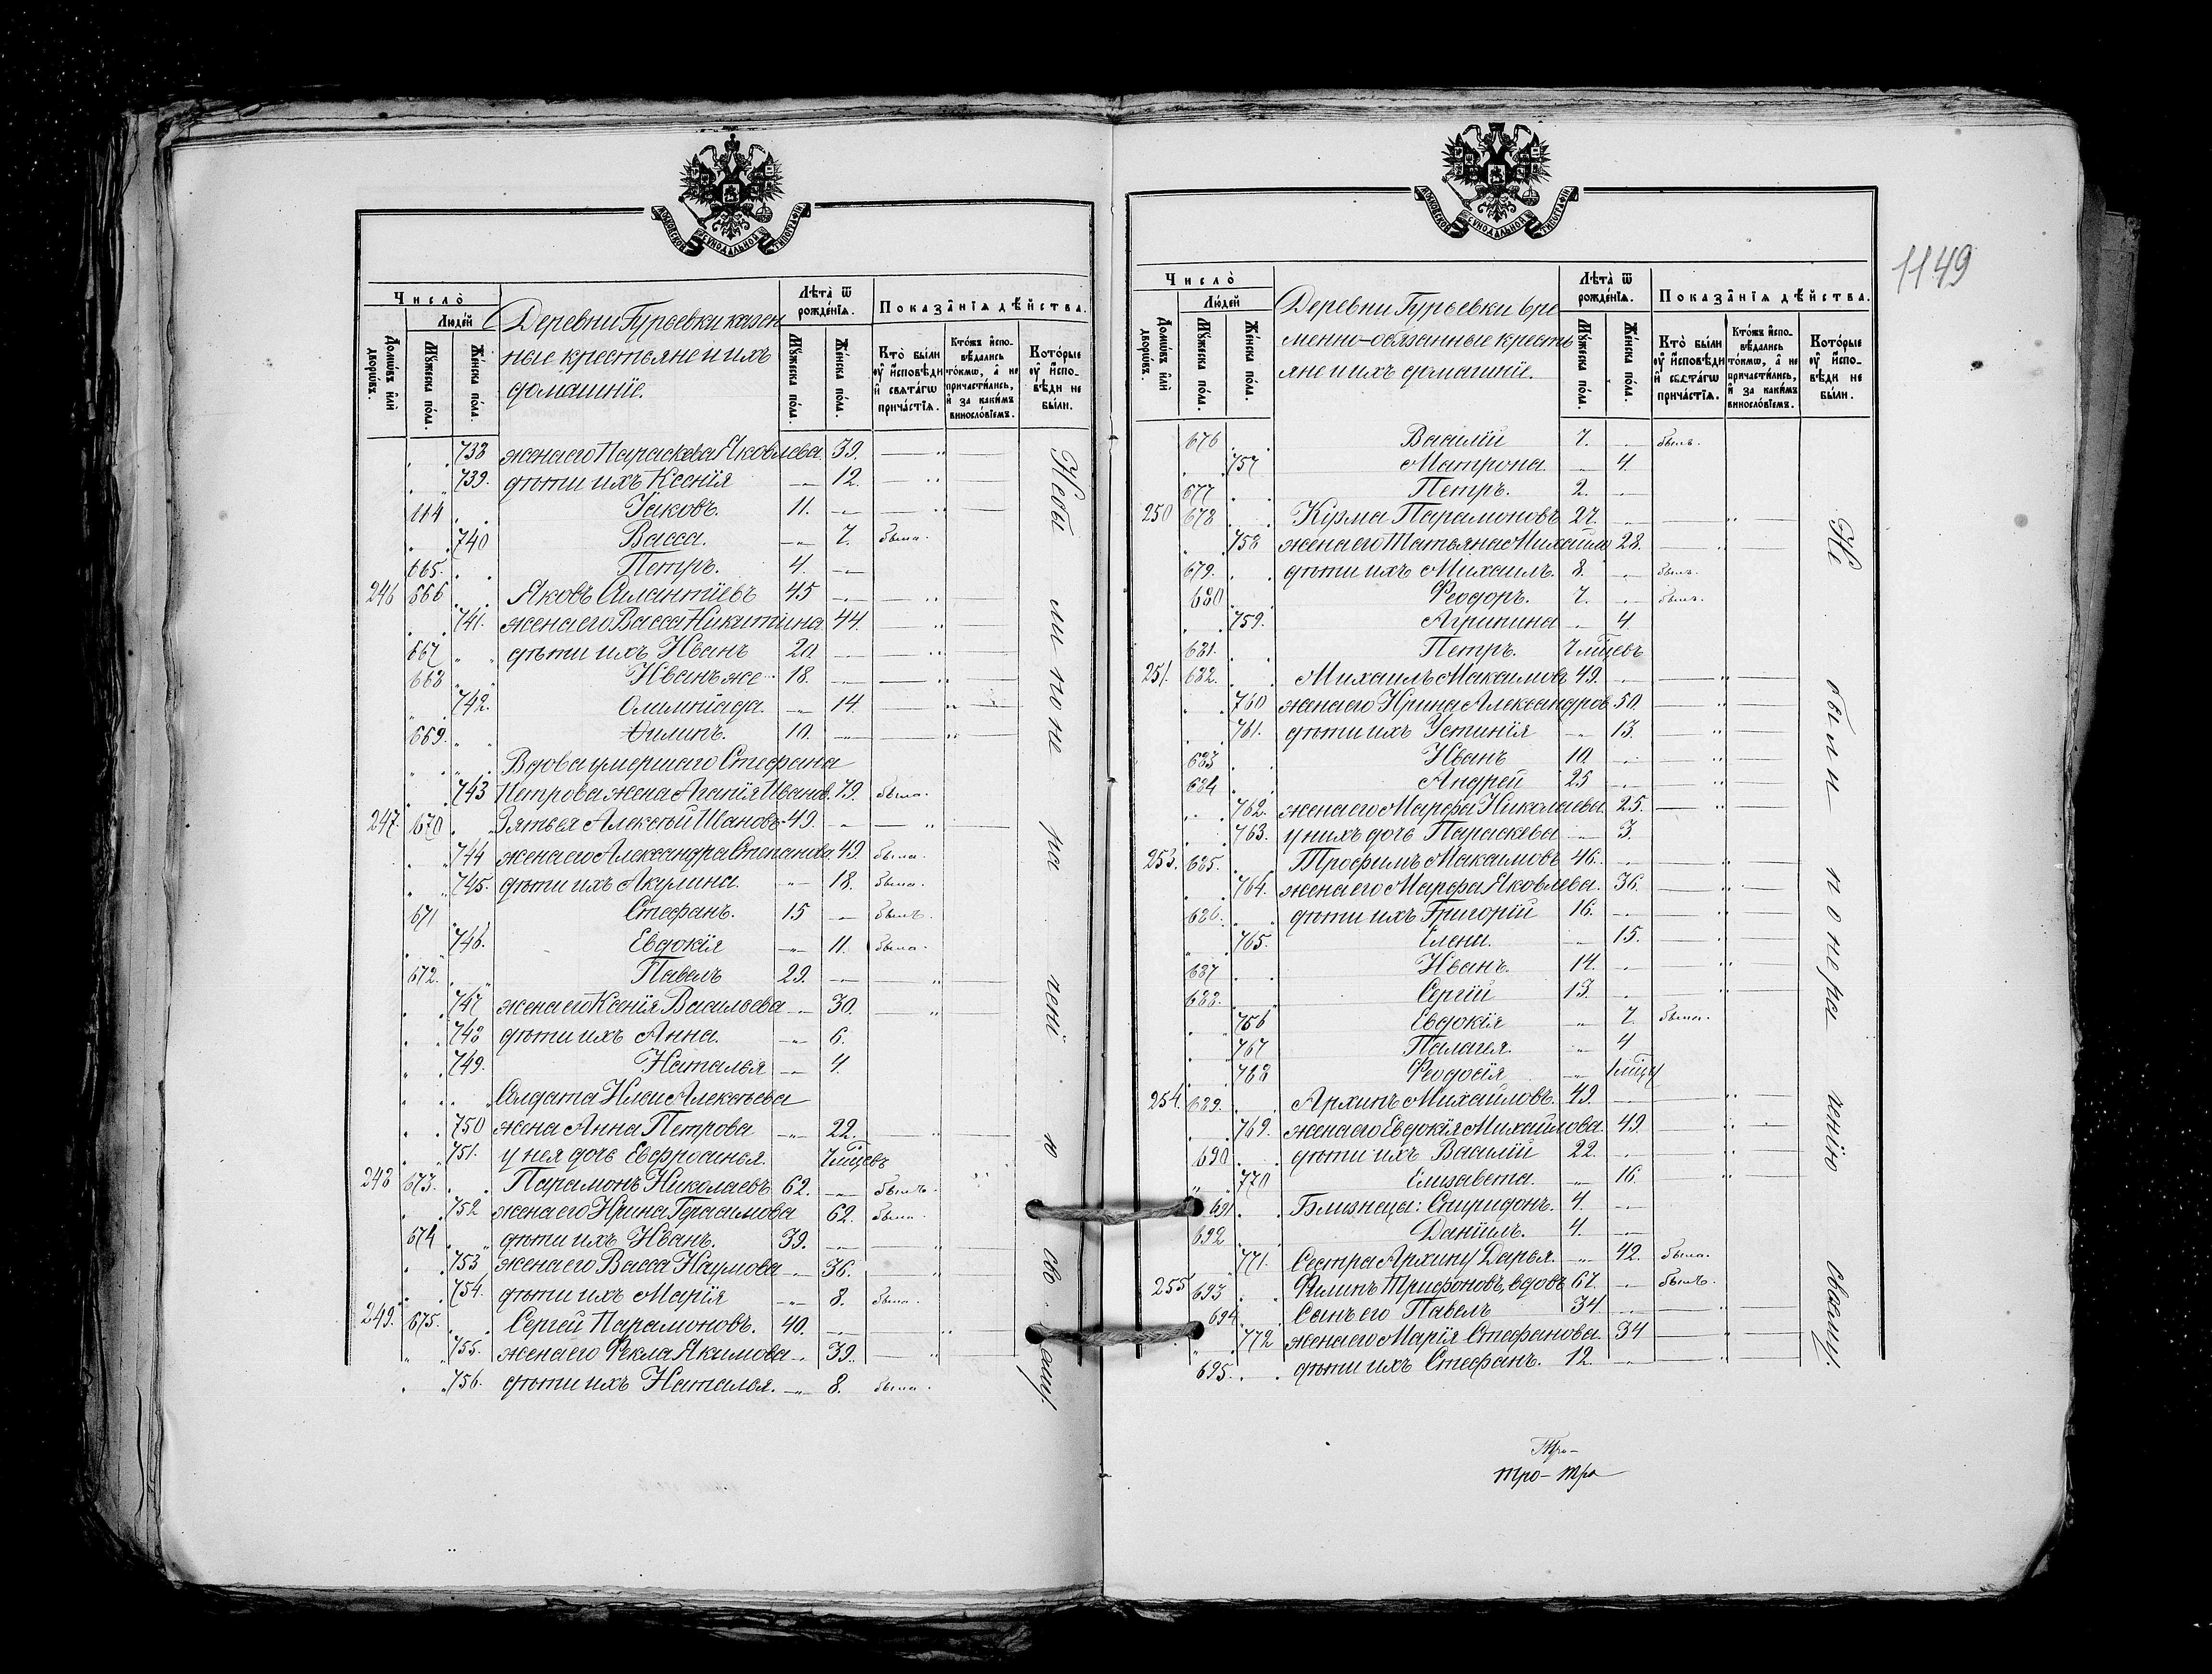 МОСКОВСКОЙ СѴНОДАЛЬНОЙ ТИПОГРАФІИ
Число̀
Люде́й
Домѡ́въ и҆лѝ дворѡ́въ.
Мꙋ́жеска по́ла.
Же́нска по́ла.
Деревни Гурьевки казен
ные крестьяне и ихъ
домашніе.
Лѣта̀ ѿ рожде́нїѧ.
Мꙋ́жеска по́ла.
Же́нска по́ла.
Показа̑нїѧ дѣ́йства.
Кто̀ бы́ли ᲂу҆ и҆сповѣ́ди и҆ свѧта́гѡ прича́стїѧ.
Кто́жъ и҆сповѣ́дались то́кмѡ, а҆ не причасти́лись, и҆ за каки́мъ винослѡ́вїемъ.
Кото́рые ᲂу҆ и҆сповѣ́ди не бы́ли.
738 жена его Параскева Яковлева 39. — „ —
739. дѣти ихъ Ксенія — 12. — „ —
664 Іаковъ. 11. — „ —
740 Васса. — 7. была.
665. Петръ. 4. —
246 666 Яковъ Силантіевъ 45 — „ —
741. жена его Васса Никитина 44. — „ —
667 дѣти ихъ Иванъ 20 — „ —
668 Иванъ же 18. — „ —
742. Олимпіада. — 14. — „ —
669. Филипъ. 10. — „ —
Вдова умершаго Стефана
743 Петрова жена Агапія Иванов. 79. была.
247. 670 Зятья Алексѣй Ивановъ 49. — „ —
744 жена его Александра Степанова 49. была.
745. дѣти ихъ Акулина. — 18. была.
671 Стефанъ. 15 — былъ.
746. Евдокія — 11. была.
672. Павелъ 29. — „ —
747 жена его Ксенія Васильева — 30. — „ —
748 дѣти ихъ Анна. — 6.
749. Наталья — 4.
Солдата Ильи Алексѣева
750 жена Анна Петрова — 22. — „ —
751. у нея дочь Евфросинья. 7 мѣсцевъ
248 673. Парамонъ Николаевъ 62. — былъ.
752 жена его Ирина Герасимова 62. была.
674 дѣти ихъ Иванъ. 39. — „ —
753 жена его Васса Наумова — 36. — „ —
754. дѣти ихъ Марія — 8. была.
249. 675. Сергей Парамоновъ. 40. — „ —
755. жена его Фекла Якимова — 39. — „ —
756. дѣти ихъ Наталья. — 8. была.
Не были по не ра дені ю сво ему.
МОСКОВСКОЙ СѴНОДАЛЬНОЙ ТИПОГРАФІИ
1149
Число̀
Люде́й
Домѡ́въ и҆лѝ дворѡ́въ.
Мꙋ́жеска по́ла.
Же́нска по́ла.
Деревни Гурьевки вре
менно-обязанные кресть
яне и ихъ домашніе.
Лѣта̀ ѿ рожде́нїѧ.
Мꙋ́жеска по́ла.
Же́нска по́ла.
Показа̑нїѧ дѣ́йства.
Кто̀ бы́ли ᲂу҆ и҆сповѣ́ди и҆ свѧта́гѡ прича́стїѧ.
Кто́жъ и҆сповѣ́дались то́кмѡ, а҆ не причасти́лись, и҆ за каки́мъ винослѡ́вїемъ.
Кото́рые ᲂу҆ и҆сповѣ́ди не бы́ли.
676 Василій 7. — былъ.
757 Матрона. — 4
677 Петръ. 2. —
250 678 Кирма Парамоновъ 27. — „ —
758 жена его Татьяна Михайло 28. — „ —
679. дѣти ихъ Михаилъ. 8. — былъ.
680 Феодоръ. 7. — былъ.
759. Агрипина — 4
681. Петръ. 7 мѣсцевъ
251. 682. Михаилъ Максимов 49. — „ —
760 жена его Ирина Александров. 50. — „ —
761. дѣти ихъ Устинія — 13. — „ —
683 Иванъ 10 — „ —
684 Андрей 25 — „ —
762. жена его Марфа Николаева. 25. — „ —
763. у нихъ дочь Параскева — 3.
253. 685. Трофимъ Максимовъ 46. — „ —
764. жена его Марфа Яковлева. 36. — „ —
686. дѣти ихъ Григорій 16. — „ —
765. Елена. — 15. — „ —
687 Иванъ. 14. — „ —
688. Сергій 13. — „ —
756 Евдокія — 7. была.
767 Палагея. — 4
768 Феодосія — 1 мѣсц
254. 689. Архипъ Михайловъ. 49. — „ —
769. жена его Евдокія Михайлова. 49. — „ —
690 дѣти ихъ Василій 22. — „ —
770 Елизавета. — 16. — „ —
691 Близнецы: Спиридонъ. 4. —
692 Даніилъ. 4. —
771. Сестра Архипу Дарья. — 42. была.
255 693 Филипъ Трифоновъ, вдовъ 67. — былъ.
694 Сынъ его Павелъ 34. — „ —
772 жена его Марія Стефанова. 34 — „ —
695. дѣти ихъ Стефанъ. 12. — „ —
Не были по нера денію своему.
Тро-
тро- тро